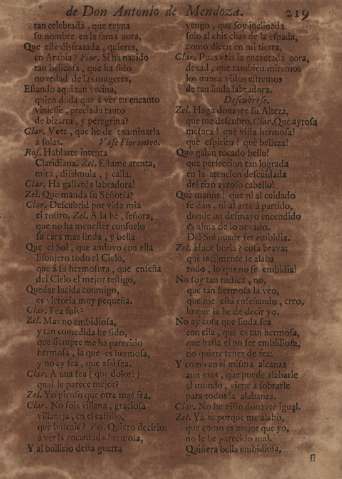 de Don Antonio de Mendoza. 219
tan celebrada, que
su nombre en la fama aora,
Que esse disfrazada, quieres,
en Arabia? Flor. Si ha nacido
tan belicosa, que ha sido
novedad de las mugeres,
Estando aqui tan vecina,
quien duda que a ver tu encanto
viniesse, preciada tanto
de bizarra, y peregrina?
Clar. Vete, que he de examinarla
a solas. Vase Floranteo.
Ros. Hablarte intenta
Claridiana. Zel. Llame atenta,
mira, dissimula, y calla.
Clar. Ha gallarda labradora!
Zel. Que manda su Señoria?
Clar. Descubrid por vida mia
el rostro. Zel. A la hè, señora,
que no ha menester consuelo
su cara mas linda, y bella
Que el Sol, que anduvo con ella
lisonjero todo el Cielo,
que a su hermosura, que enseña
del Cielo el mejor testigo,
Quedar lucida conmigo,
es vitoria muy pequeña.
Clar. Fea sois?
Zel. Mas no embidiosa,
y tan comedida he sido,
que siempre me ha parecido
hermosa, la que es hermosa,
y no ay fea, que assi sea.
Clar. A una fea (què dolor!)
qual le parece mejor?
Zel. Yo pienso que otra mas fea.
Clar. No sois villana, graciosa
villana, en el estilo,
què buscais? Quiero decirlo:
à ver la encantada hermosa,
Y al bullicio desta guerra
vengo, que soy inclinada
solo al chis chas de la espada,
como dicen en mi tierra.
Clar. Pues
de sal, que tambien miremos
los nunca vistos estremos
de tan linda labradora.
Descubrese.
Zel. Haga donayre su Alteza,
que me descubro. Clar. Què ayrosa
mesura! què vida hermosa!
què espiritu! què belleza!
Què galan tocado bello!
què perfeccion tan lograda
en la atencion descuidada
del raro ayroso cabello!
Què manos! que ni al cuidado
se dan, ni al arte à partido,
donde un desmayo encendido
es alma de lo nevado.
Desconfiança fue embidia!
Zel. Hace burla? cosa brava!
que facilmente se alaba
todo, lo que no se embidia!
No soy tan necia, no,
que tan hermosa la veo,
que me està enseñando, creo,
lo que la he de decir yo.
No ay cosa que linda sea
con ella, què es tan hermosa,
que hasta el no ser embidiosa,
no quiere tener de fea:
Y como en sì misma alcanza
una cosa, que puede alabarle
el mundo, viene à sobrarle
para todos la alabanza.
Clar. No he visto donayre igual.
Zel. Ya sè porque me alabo,
que como es mejor que yo,
no le he parecido mal.
Quisiera bella embidiosa,